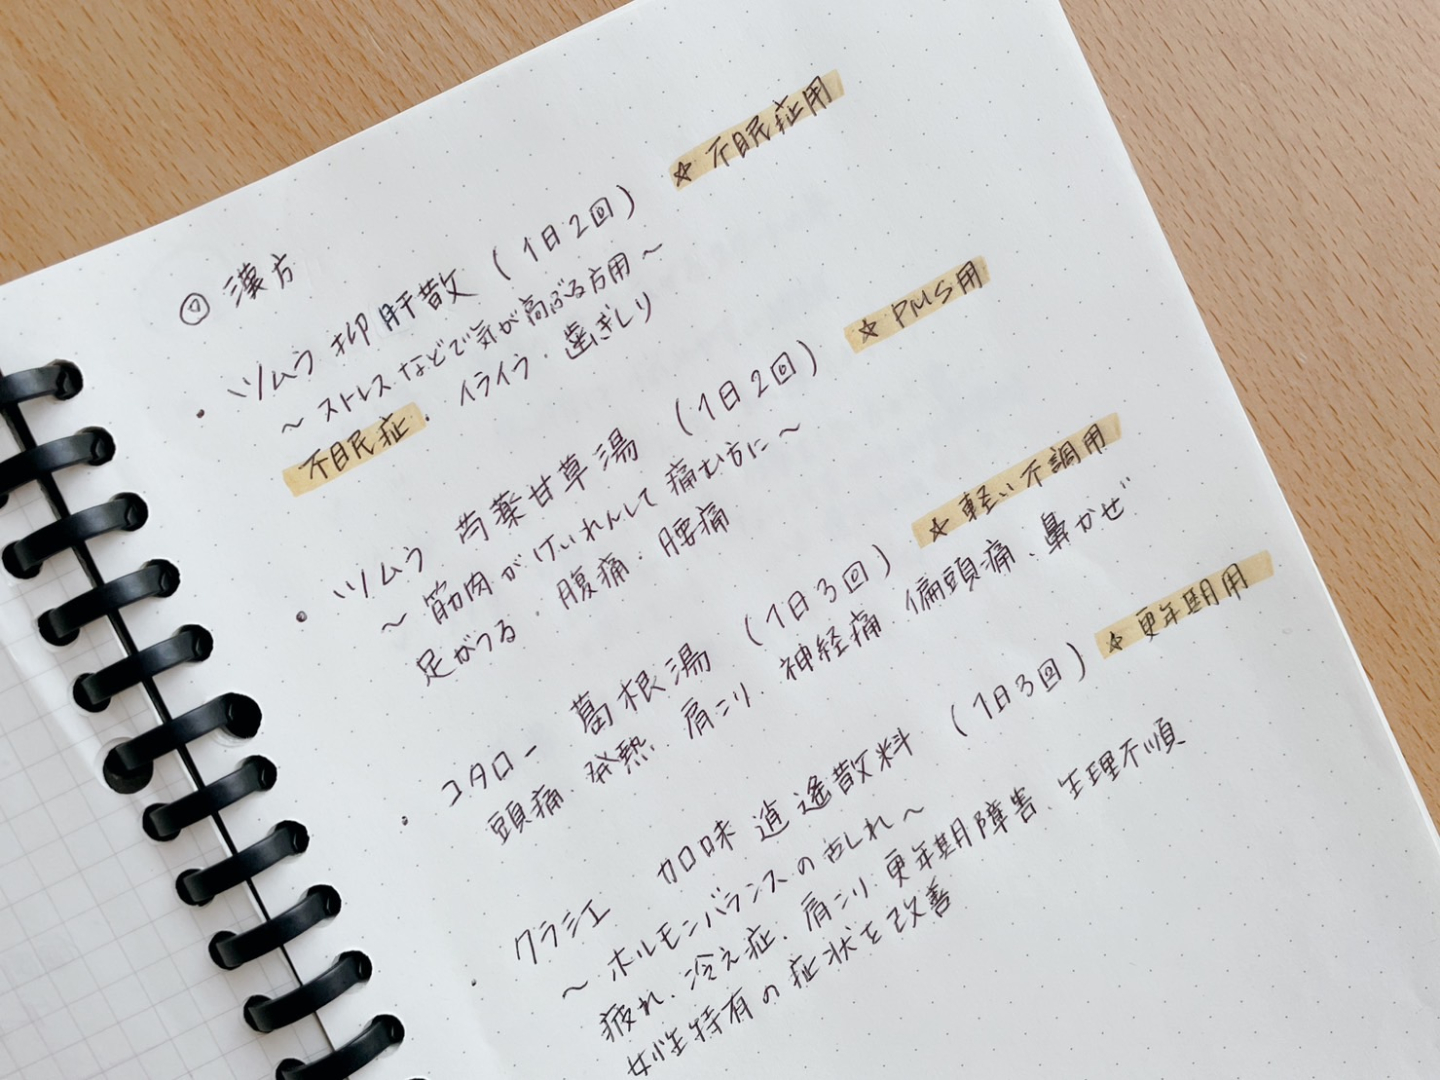 ◎ 漢方
・ツムラ 抑肝散 (1日2回) ☆ 不眠症用
～ストレスなどで気が高ぶる方用～
不眠症・イライラ・歯ぎしり
・ツムラ 芍薬甘草湯 (1日2回) ☆ PMS用
～筋肉がけいれんして痛む方に～
足がつる・腹痛・腰痛
・コタロー 葛根湯 (1日3回) ☆ 軽い不調用
頭痛、発熱、肩こり、神経痛、偏頭痛、鼻かぜ
・クラシエ 加味逍遙散料 (1日3回) ☆ 更年期用
～ホルモンバランスの乱れ～
疲れ、冷え症、肩こり、更年期障害、生理不順
女性特有の症状を改善